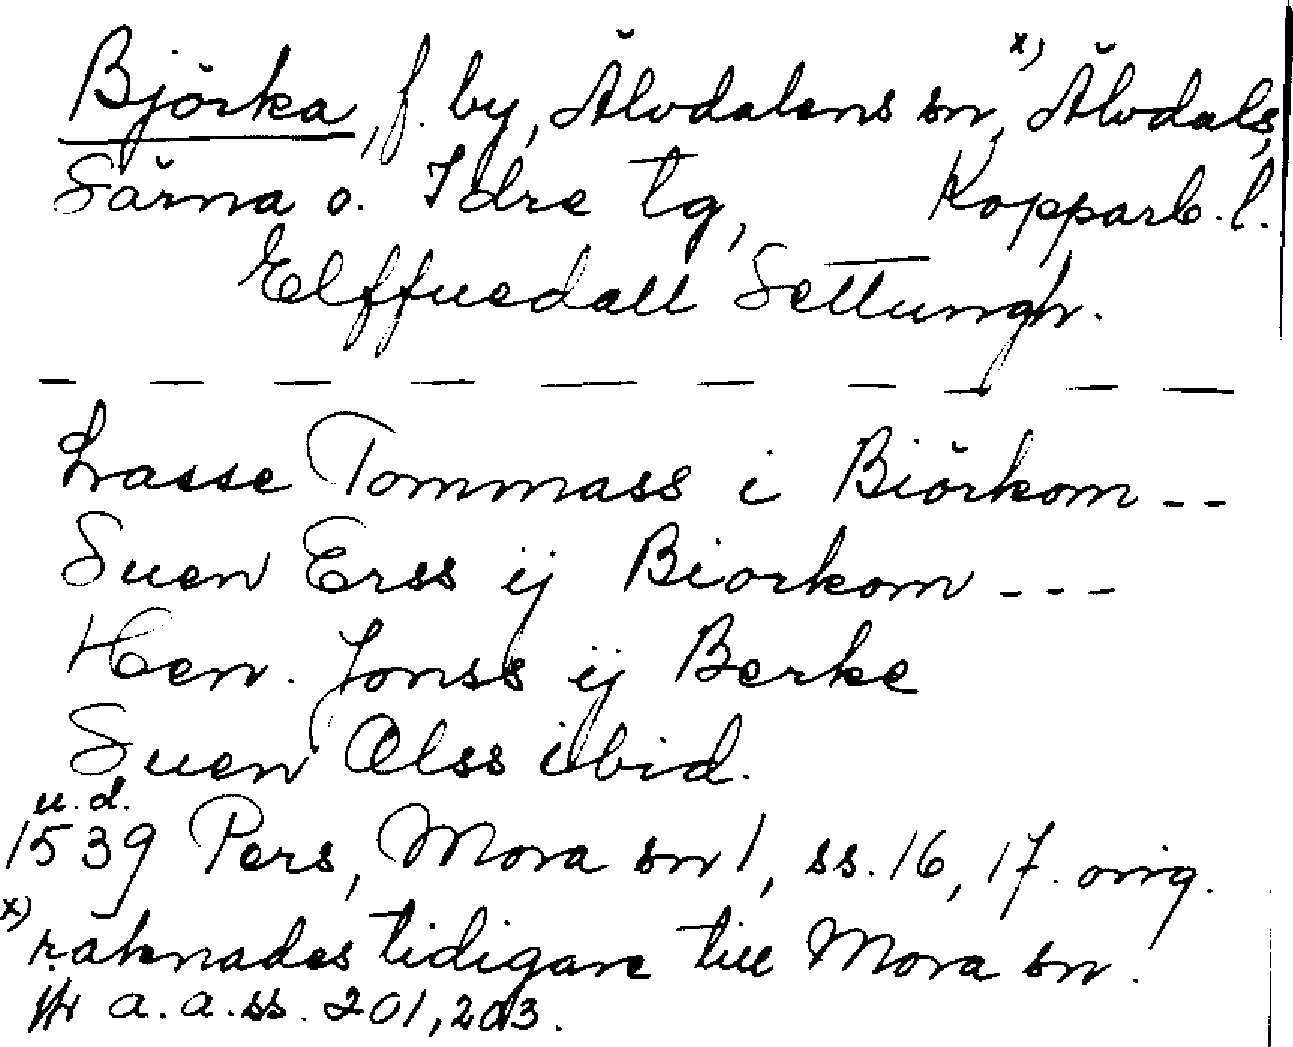 Björka, f. by, Älvdalens sn, x) Älvdals,
Särna o. Idre tg, Kopparb. l.
Elffuedall Settungh.
Lasse Tommass i Biörkom --
Suen Erss ij Biorkom ---
Hen. Jonss ij Berke
Suen Olss ibid.
u.d.
1539 Pers, Mora sn 1, ss. 16, 17. orig.
x) räknades tidigare till Mora sn.
jfr a.a. ss. 201, 203.